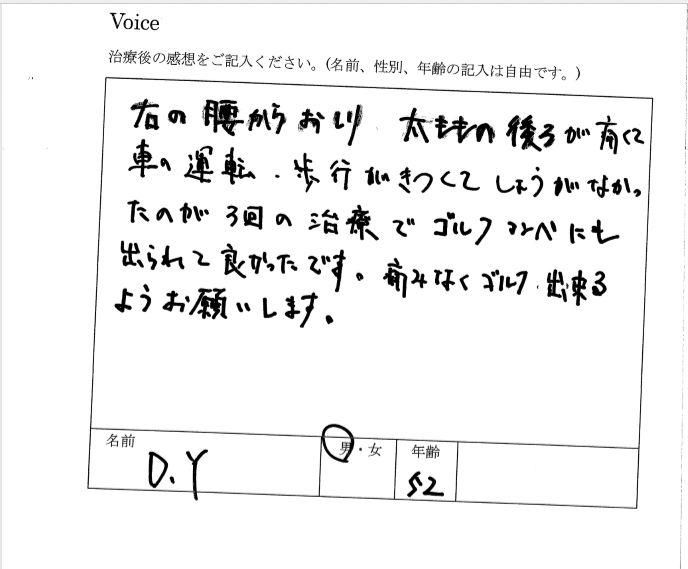 Voice
治療後の感想をご記入ください。(名前、性別、年齢の記入は自由です。)
右の腰からおしり 太ももの後ろが痛くて
車の運転、歩行がきつくてしょうがなかっ
たのが3回の治療でゴルフコンペにも
出られて良かったです。痛みなくゴルフ出来る
ようお願いします。
名前 男・女 年齢
D.Y 52